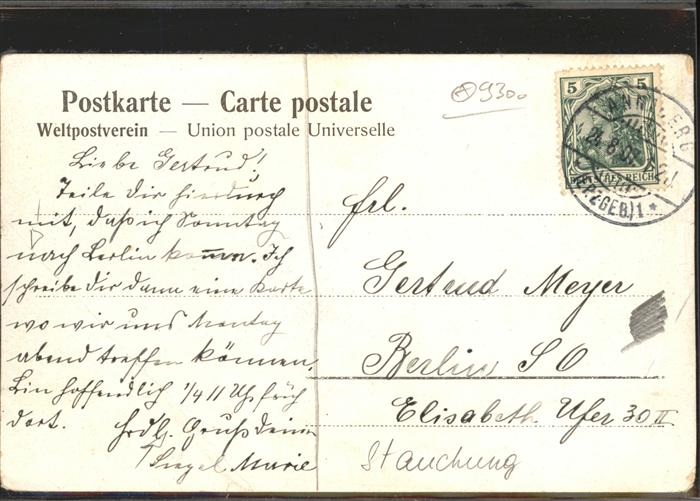 Postkarte — Carte postale
Weltpostverein — Union postale Universelle
⊕9300
5 5
DEUTSCHES REICH
ANNABERG
(ERZGEB.) 1 *
Liebe Gertrud!
Teile dir hierdurch
mit, daß ich Sonntag
nach Berlin komme. Ich
schreibe dir dann eine Karte
wo wir uns Montag
abend treffen können.
Bin hoffendlich 1/4 11 Uhr früh
dort. Hrdl. Gruß Deine
Marie
Frl.
Gertrud Meyer
Berlin S O
Elisabeth Ufer 30 II
Stauchung